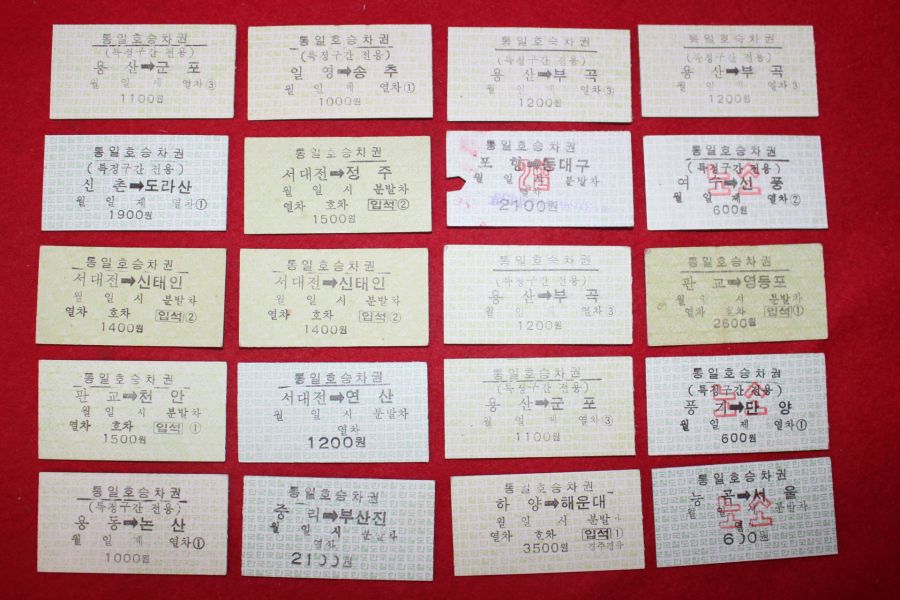 통일호승차권
(특정구간 전용)
용 산➡군 포
월 일 제 열차③
1100원
통일호승차권
(특정구간 전용)
일 영➡송 추
월 일 제 열차①
1000원
통일호승차권
(특정구간 전용)
용 산➡부 곡
월 일 제 열차③
1200원
통일호승차권
(특정구간 전용)
용 산➡부 곡
월 일 제 열차③
1200원
통일호승차권
(특정구간 전용)
신 촌➡도라산
월 일 제 열차①
1900원
통일호승차권
서대전➡정 주
월 일 시 분발차
열차 호차 입석②
1500원
통일호승차권
포 항➡동대구
월 일 시 분발차
열차
2100원
통일호승차권
(특정구간 전용)
여 수➡신 풍
월 일 제 열차②
600원
소
통일호승차권
서대전➡신태인
월 일 시 분발차
열차 호차 입석②
1400원
통일호승차권
서대전➡신태인
월 일 시 분발차
열차 호차 입석②
1400원
통일호승차권
(특정구간 전용)
용 산➡부 곡
월 일 제 열차③
1200원
통일호승차권
판 교➡영등포
월 일 시 분발차
열차 호차 입석①
2600원
통일호승차권
판 교➡천 안
월 일 시 분발차
열차 호차 입석①
1500원
통일호승차권
서대전➡연 산
월 일 시 분발차
열차
1200원
통일호승차권
(특정구간 전용)
용 산➡군 포
월 일 제 열차③
1100원
통일호승차권
(특정구간 전용)
풍 기➡단 양
월 일 제 열차①
600원
소
통일호승차권
(특정구간 전용)
용 동➡논 산
월 일 제 열차①
1000원
통일호승차권
중 리➡부산진
월 일 시 분발차
열차
2100원
통일호승차권
하 양➡해운대
월 일 시 분발차
열차 호차 입석①
3500원 경주경유
통일호승차권
능 곡➡서 울
월 일 분발차
600원
소